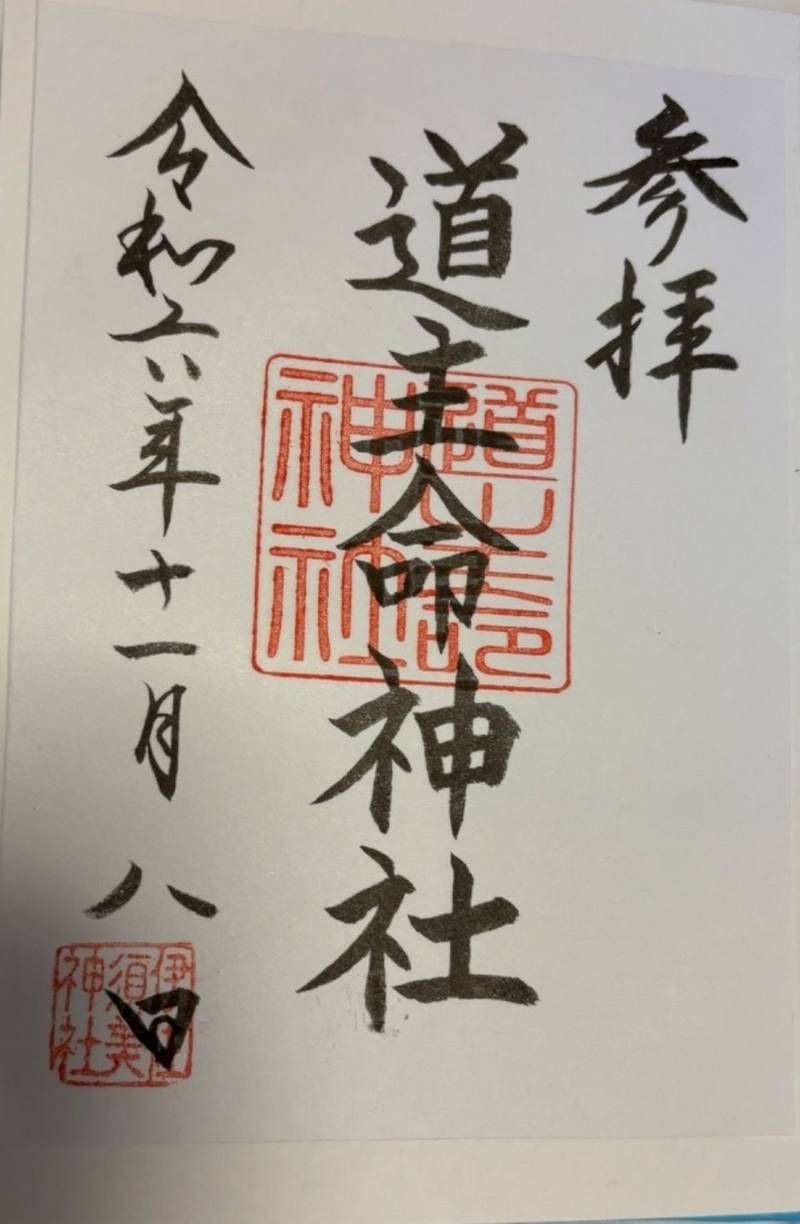 参拝
道主命神社
道主命神社
令和六年十一月八日
伊佐須美神社